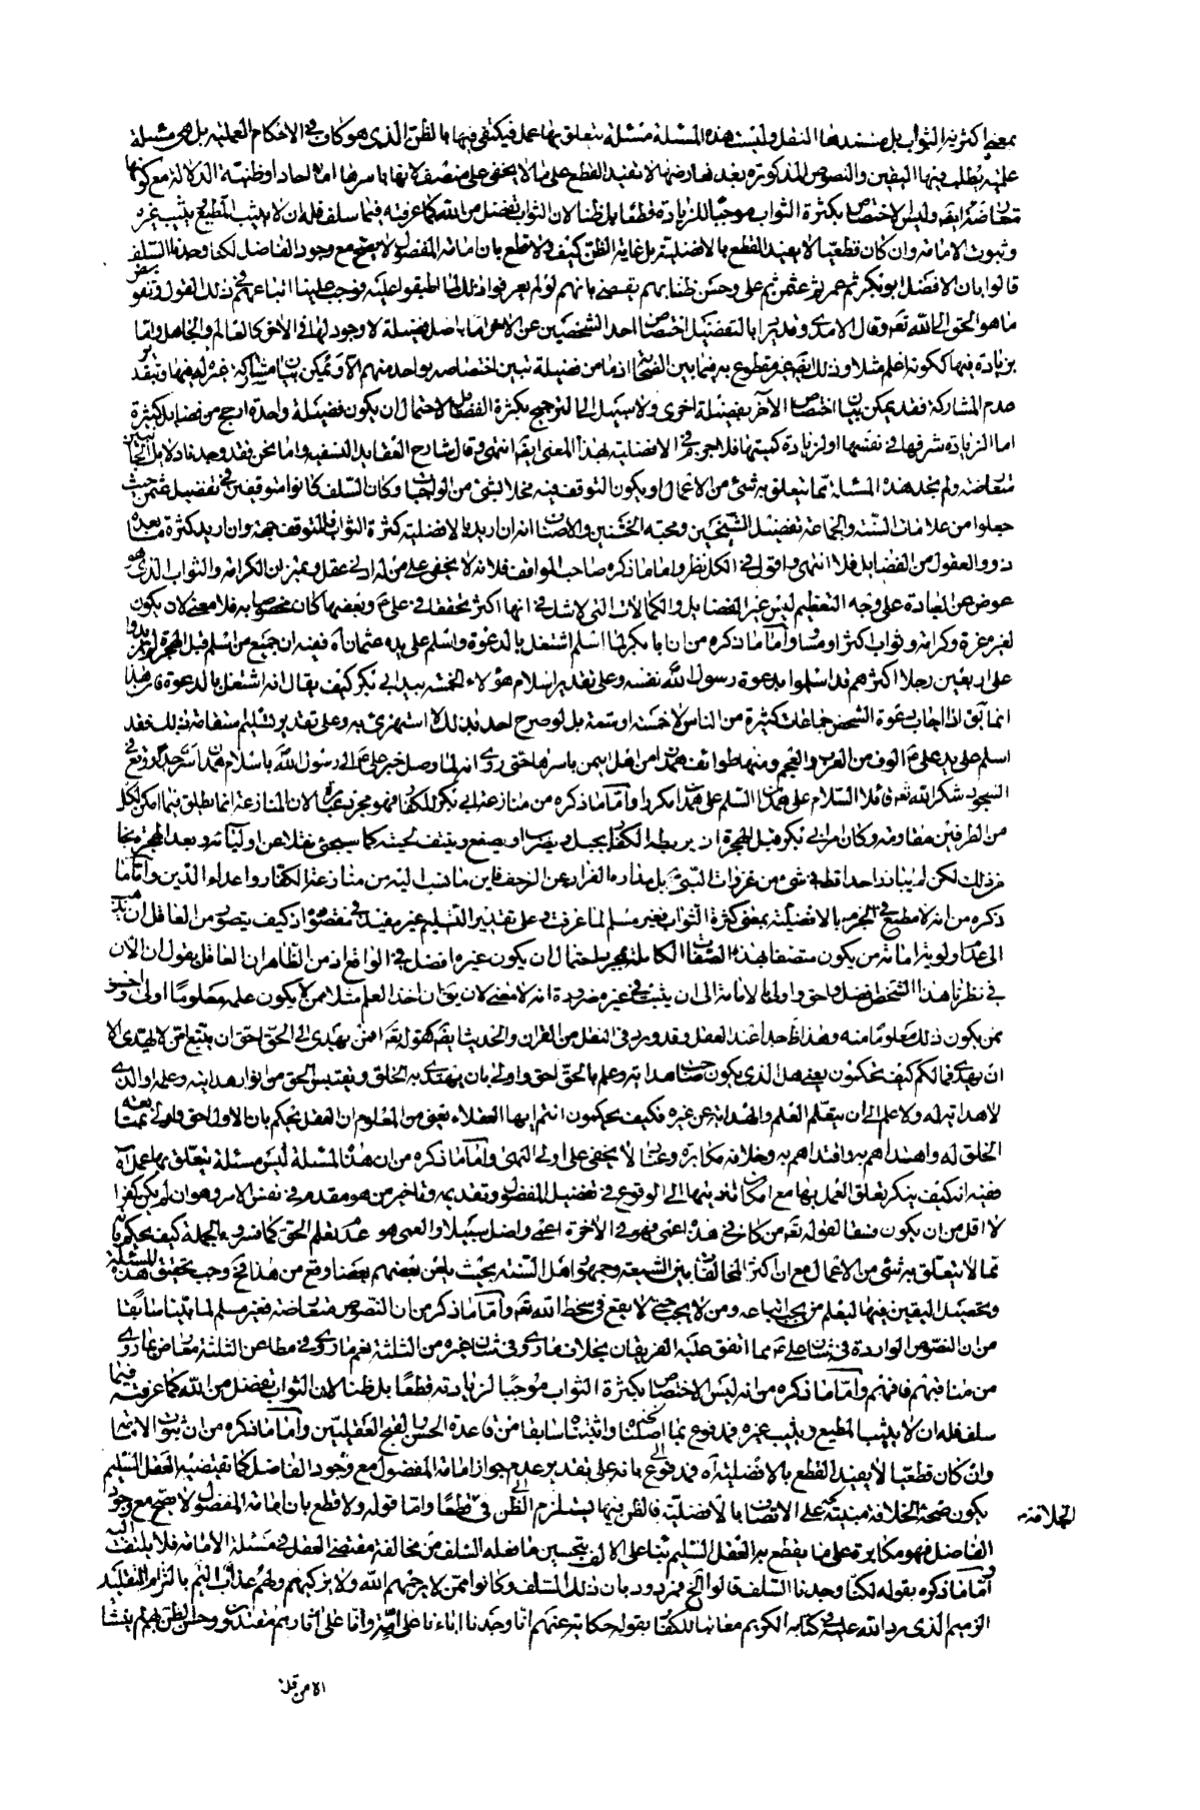 بمعنى اكثرية الثواب بل مستندها النقل وليست هذه المسئلة مسئلة يتعلق بها عمل فيكتفى فيها بالظن الذى هو كاف فى الاحكام العملية بل هى مسئلة
علمية يطلب فيها اليقين والنصوص المذكورة بعد تعارضها لا تفيد القطع على ما لا يخفى على منصف لانها باسرها اما احاد او ظنية الدلالة مع كونها
متعارضة ايضا وليس الاختصاص بكثرة الثواب موجبا لزيادته قطعا بل ظنا لان الثواب تفضل من الله كما عرفته فيما سلف فله ان لا يثيب المطيع ويثيب غيره
وثبوت الامامة وان كان قطعيا لا يفيد القطع بالافضلية بل غايته الظن كيف ولا قطع بان امامة المفضول لا يصح مع وجود الفاضل لكنا وجدنا السلف
قالوا بان الافضل ابو بكر ثم عمر ثم عثمن ثم على وحسن ظننا بهم يقتضى بانهم لو لم يعرفوا ذلك لما اطبقوا عليه فوجب علينا اتباعهم فى ذلك القول وتفويض
ما هو الحق الى الله تعه وقال الامدى وقد يراد بالتفضيل اختصاص احد الشخصين عن الاخر اما باصل فضيلة لا وجود لها فى الاخر كالعالم والجاهل واما
بزيادة فيها ككونه اعلم مثلا وذلك ايضا غير مقطوع به فيما بين الصحابة اذ ما من فضيلة تبين اختصاصها بواحد منهم الا ويمكن بيان مشاركة غيره له فيها وبتقدير
عدم المشاركة فقد يمكن بيان اختصاص الآخر بفضيلة اخرى ولا سبيل الى الترجيح بكثرة الفضائل لاحتمال ان يكون فضيلة واحدة ارجح من فضايل كثيرة
اما لزيادة شرفها فى نفسها او لزيادة كميتها فلا جزم فى الافضلية بهذا المعنى ايضا انتهى وقال شارح العقايد النسفية واما نحن فقد وجدنا دلايل الجانبين
متعارضة ولم نجد هذه المسئلة مما يتعلق به شئ من الاعمال او يكون التوقف فيه مخلا بشئ من الواجبات وكان السلف كانوا متوقفين فى تفضيل عثمن حيث
جعلوا من علامات السنة والجماعة تفضيل الشيخين ومحبة الختنين والانصاف انه ان اريد بالافضلية كثرة الثواب فللتوقف جهة وان اريد كثرة ما يعده
ذوو العقول من الفضايل فلا انتهى واقول فى الكل نظر اما ما ذكره صاحب المواقف فلانه لا يخفى على من له ادنى عقل وتميز ان الكرامة والثواب الذى هو
عوض عن العبادة على وجه التعظيم ليس غير الفضايل والكمالات التى لا شك فى انها اكثر تحققا فى على ع وبعضها كان مخصوصا به فلا معنى لان يكون
لغيره عزة وكرامة وثواب اكثر او مساو واما ما ذكره من ان ابا بكر لما اسلم اشتغل بالدعوة واسلم على يده عثمان اه ففيه ان جميع من اسلم قبل الهجرة لم يزيدوا
على اربعين رجلا اكثرهم قد اسلموا بدعوة رسول الله نفسه وعلى تقدير اسلام هؤلاء الخمسة بيد ابى بكر كيف يقال انه اشتغل بالدعوة فان هذا
انما يق اذا اجاب دعوة الشخص جماعات كثيرة من الناس لا خمسة او ستة بل لو صرح احد بذلك لاستهزئ به وعلى تقدير تسليم متفاضته بذلك فقد
اسلم على يد على ع الوف من العرب والعجم ومنها طوائف همدان من اهل اليمن باسرها حتى روى انه لما وصل خبر على ع الى رسول الله باسلام همدان سر جدا ووقع فى
السجود شكرا لله تعه قائلا السلام على همدان السلام على همدان مكررا واما ما ذكره من منازعة ابى بكر للكفار فهو مجرد عبارة لان المنازعة انما يطلق فيما امكن لكل
من الطرفين مقاومة وكان امر ابى بكر قبل الهجرة ان يربطه الكفار بحبل ويضرب او يصفع وينتف لحيته كما سيجئ نقلا عن اوليائه وبعد الهجرة نجا
من ذلك لكن لم يبارز احدا قط فى شئ من غزوات النبى ص بل مداره الفرار عن الزحف فاين ما نسب اليه من منازعة الكفار واعداء الدين واما ما
ذكره من انه لا مطمع فى الجزم بالافضلية بمعنى كثرة الثواب فغير مسلم لما عرفت وعلى تقدير التسليم غير مفيد فى مقصوده اذ كيف يتصور من العاقل ان
الى عدا ولوية امامة من يكون متصفا بهذه الصفات الكاملة بمجرد احتمال ان يكون غيره افضل فى الواقع اذ من الظاهر ان العاقل يقول ان الان
فى نظرنا هذا الشخص افضل واحق واولى بالامامة الى ان يثبت فى غيره ضرورة انه لا معنى لان يقال ان اخذ العلم مثلا ممن لا يكون علمه معلوما اولى واحسن
ممن يكون ذلك معلوما منه وهذا ظاهر جدا عند العقل وقد ورد فى النقل من القران والحديث ايضا كقوله تعه افمن يهدى الى الحق احق ان يتبع امن لا يهدى الا
ان يهدى فما لكم كيف تحكمون يعنى هل الذى يكون صاحب هداية وعلم بالحق احق واولى بان يهتدى به الخلق ويقتبس الحق من انوار هدايته وعلمه او الذى
لا هداية له ولا علم الى ان يتعلم العلم والهداية عن غيره فكيف يحكمون انتم ايها العقلاء يعنى من المعلوم ان العقل يحكم بان الاول احق واولى بمتابعة
الخلق له واهتداءهم به واقتداهم به وخلافه مكابرة وعناد لا يخفى على اولى النهى واما ما ذكره من ان هذه المسئلة ليس مسئلة يتعلق بها عمل اه
ففيه انه كيف ينكر تعلق العمل بها مع امكان تاديتها الى الوقوع فى تفضيل المفضول وتقديمه وتاخير من هو مقدم فى نفس الامر وهو ان لم يكن كفرا
لا اقل من ان يكون فسقا لقوله تعه من كان فى هذه اعمى فهو فى الاخرة اعمى واضل سبيلا والعمى هو عدم تعلم الحق كما فسر به وبالجملة كيف يحكم بانه
مما لا يتعلق به شئ من الاعمال مع ان اكثر المخالفات بين الشيعة وجمهور اهل السنة بحيث يلعن بعضهم بعضا وقع من هذا فى وجب تحقيق هذه المسئلة
وتحصيل اليقين فيها ليعلم من يجب اتباعه ومن لا يجب حتى لا يقع فى سخط الله تعه واما ما ذكر من ان النصوص متعارضة فغير مسلم لما بينا سابقا
من ان النصوص الواردة فى شان على ع مما اتفق عليه الفريقان بخلاف ما روى فى شان غيره من الثلثة نعم ما روى فى مطاعن الثلثة معارض بما روى
من مناقبهم فافهم واما ما ذكره من انه ليس الاختصاص بكثرة الثواب موجبا لزيادته قطعا بل ظنا لان الثواب تفضل من الله كما عرفته فيما
سلف فله ان لا يثيب المطيع ويثيب غيره فمدفوع بما اصلناه واثبتناه سابقا من قاعدة الحسن والقبح العقليين واما ما ذكره من ان ثبوت الامامة
وان كان قطعيا لا يفيد القطع بالافضلية اه فمدفوع بانه على تقدير عدم جواز امامة المفضول مع وجود الفاضل كما تقتضيه العقل السليم
يكون صحة الخلافة مبنية على الاتصاف بالافضلية فالظن فيها يستلزم الظن فى الخلافة قطعا واما قوله ولا قطع بان امامة المفضول لا يصح مع وجود
الفاضل فهو مكابرة على ما يقطع به العقل السليم بناء على الالف بتحسين ما فعله السلف من مخالفة مقتضى العقل فى مسئلة الامامة فلا يلتفت اليه
واما ما ذكره بقوله لكنا وجدنا السلف قالوا اخ فمردود بان ذلك السلف وكانوا ممن لا يرحمهم الله ولا يزكيهم ولهم عذاب اليم بالتزام التقليد
الزميم الذى رد الله عليه فى كتابه الكريم معاتبا للكفار بقوله حكاية عنهم انا وجدنا اباءنا على امة وانا على اثارهم مقتدون وحسن الظن بهم لم ينشا
الا من قلة